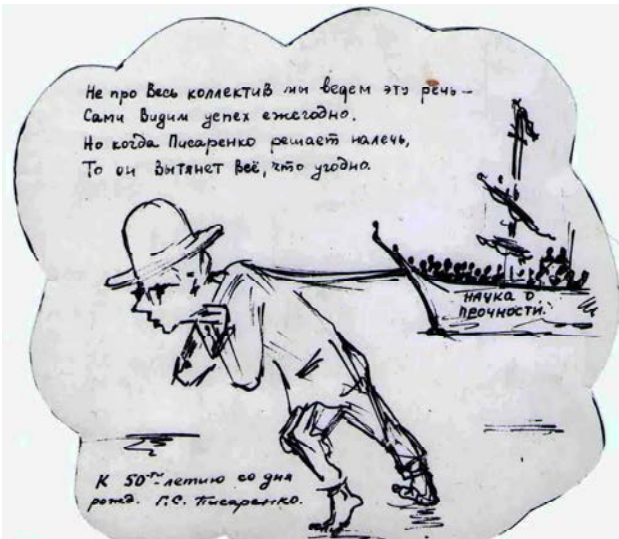 Не про весь коллектив мы ведем эту речь —
Сами видим успех ежегодно.
Но когда Писаренко решает налечь,
То он вытянет всё, что угодно.
НАУКА О
ПРОЧНОСТИ.
К 50-ти-летию со дня
рожд. Г.С. Писаренко.